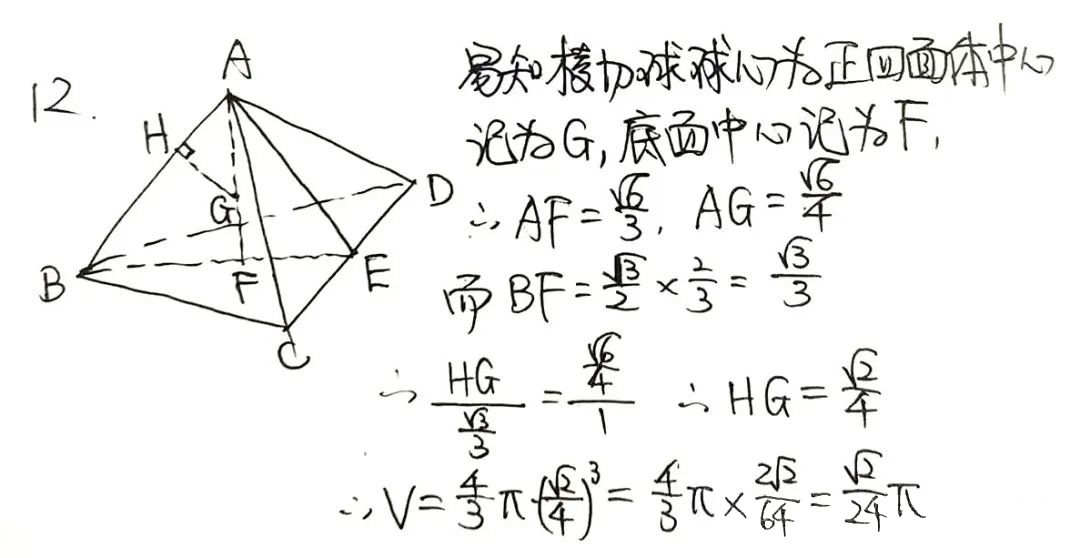 12.
A
H
G
D
B
F
E
C
易知棱切球球心为正四面体中心
记为G,底面中心记为F,
∴ AF=√6/3, AG=√6/4
而 BF=√3/2×2/3=√3/3
∴ HG/(√3/3)=(√6/4)/1 ∴ HG=√2/4
∴ V=4/3π·(√2/4)³=4/3π×2√2/64=√2/24π